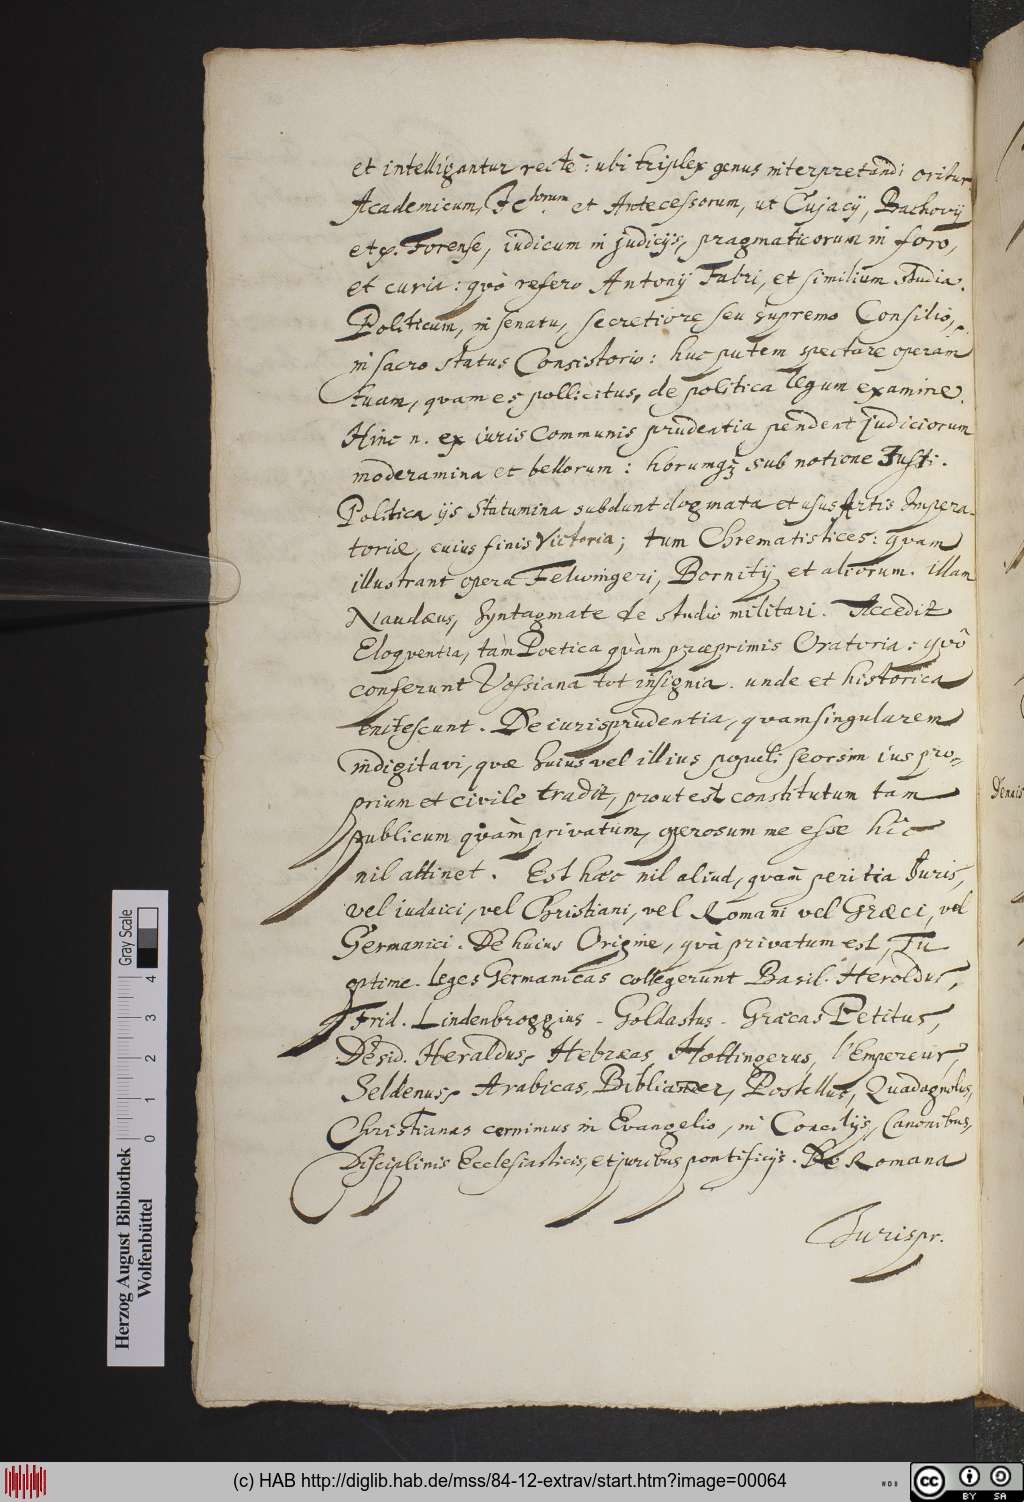 et intelligantur rectè: ubi triplex genus interpretandi oritur.
Academicum, JCtorum et Antecessorum, ut Cujacij, Bachovij
etc. Forense, iudicum in judicijs, pragmaticorum in foro,
et curia: quò refero Antonij Fabri, et similium studia.
Politicum, in senatu, secretiore seu supremo Consilio,
in sacro status Consistorio: huc putem spectare operam
tuam, quam es pollicitus, de politica legum examine.
Hinc n. ex iuris communis prudentia pendent judiciorum
moderamina et bellorum: horumq; sub notione Justi.
Politica ijs statumina subdunt dogmata et usus Artis Impera-
toriæ, cuius finis Victoria; tum Chrematistices: quam
illustrant opera Felwingeri, Bornitij et aliorum. illam
Naudæus, Syntagmate de studio militari. Accedit
Eloquentia, tàm Poetica quàm præprimis Oratoria: quô
conferunt Vossiana tot insignia. unde et historica
enitescunt. De iurisprudentia, quam singularem
indigitavi, quæ huius vel illius populi seorsim ius pro-
prium et civile tradit, prout est constitutum tam
publicum quàm privatum, operosum me esse hic
nil attinet. Est hæc nil aliud, quàm peritia Juris,
vel iudaici, vel Christiani, vel Romani vel Græci, vel
Germanici. De huius Origine, quà privatum est, Tu
optime. leges Germanicas collegerunt Basil. Heroldus,
Frid. Lindenbroggius - Goldastus - Græcas Petitus,
Desid. Heraldus, Hebræas Hottingerus, l'Empereur,
Seldenus, Arabicas, Bibliander, Postellus, Quadagnolus,
Christianas cernimus in Evangelio, in Concilijs, Canonibus,
Disciplinis Ecclesiasticis, et juribus pontificijs. De Romana
Jurispr.
Herzog August Bibliothek
Wolfenbüttel
0 1 2 3 4
Gray Scale
(c) HAB http://diglib.hab.de/mss/84-12-extrav/start.htm?image=00064
cc BY SA